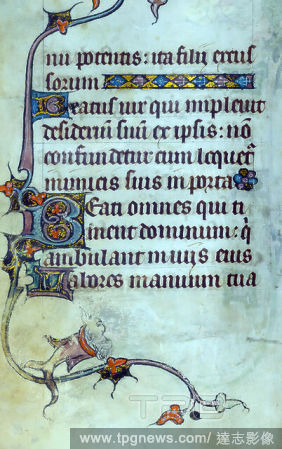 nu potentis: ita filij excus
sorum
Beatus uir qui impleuit
desideriū suū ex ipsis: nō
confundetur cum loquetr̄
inimicis suis in porta
Beati omnes qui ti
ment dominum: q̄
ambulant in uijs eius
Labores manuum tua
TPG
www.tpgnews.com/ 達志影像